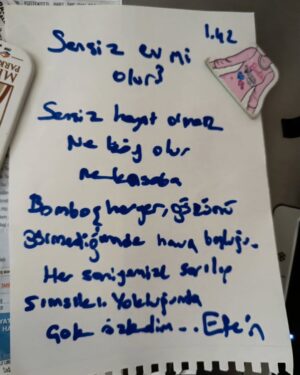 1.42
Sensiz ev mi
olur?
Sensiz hayat olmaz
Ne köy olur
ne kasaba
Bomboş heryer, gözünü
görmediğimde hava boşluğu..
Her saniyemizi sarılıp
Yokluğunda
çok özledim.. Efe'n